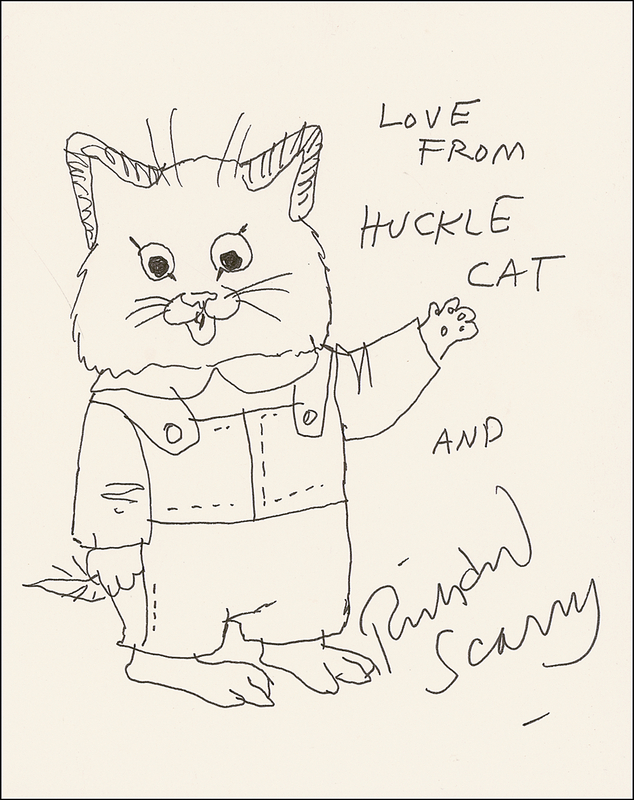 LOVE
FROM
HUCKLE
CAT
AND
Richard
Scarry